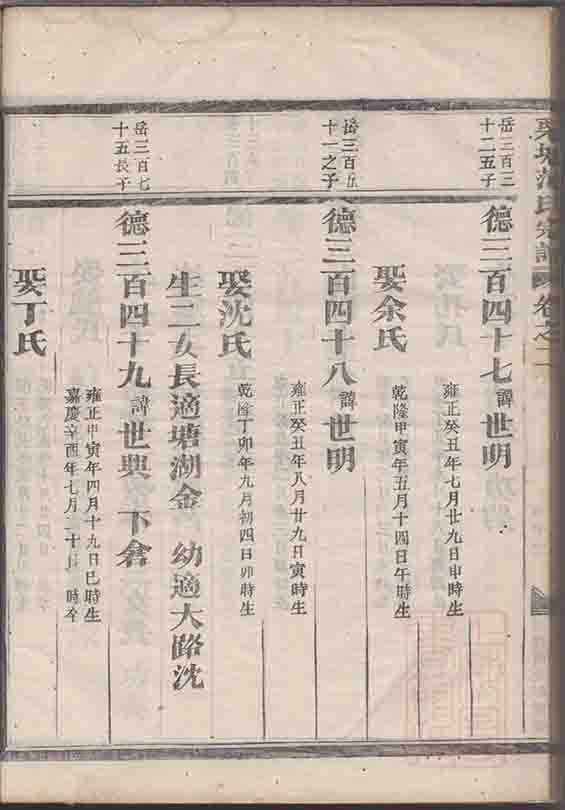 范氏宗譜 卷之二
岳三百三
十二五子
德三百四十七諱世明
雍正癸丑年七月廿九日申時生
娶余氏
乾隆甲寅年五月十四日午時生
岳三百五
十一之子
德三百四十八諱世明
雍正癸丑年八月廿九日寅時生
娶沈氏
乾隆丁卯年九月初四日卯時生
生二女長適塘湖金 幼適大路沈
岳三百七
十五長子
德三百四十九諱世興 下倉
雍正甲寅年四月十九日巳時生
嘉慶辛酉年七月二十日 時卒
娶丁氏